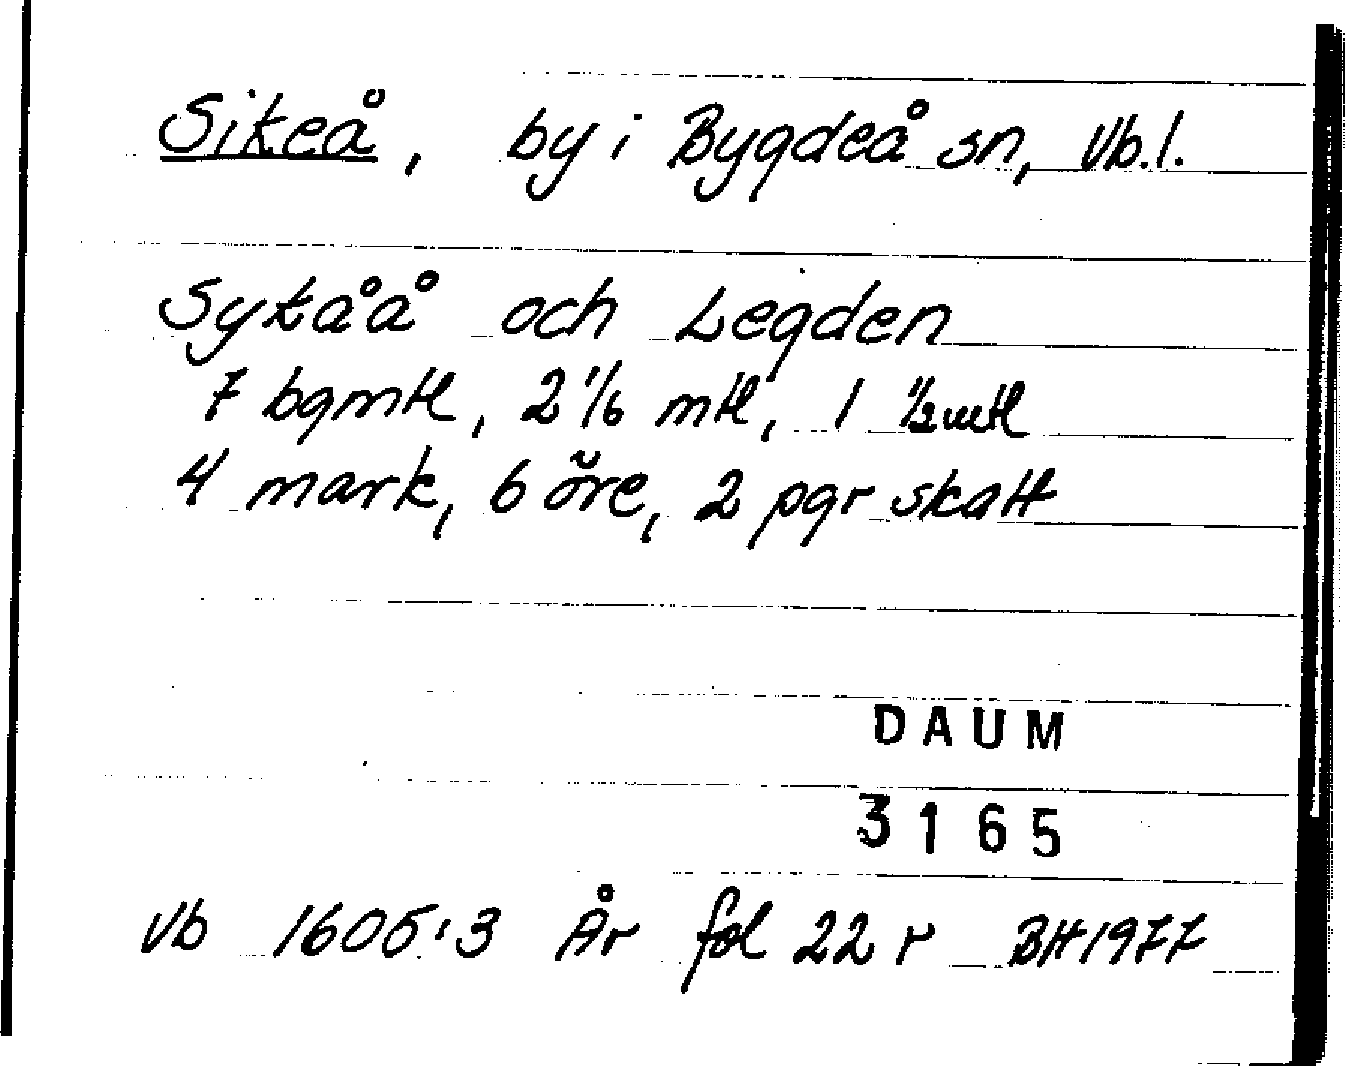 Sikeå, by i Bygdeå sn, Vb.l.
Sykåå och Legden
7 bgmtl, 2 1/6 mtl, 1 1/2 mtl
4 mark, 6 öre, 2 pgr skatt
DAUM
3165
Vb 1605:3 År fol 22 r BH 1977